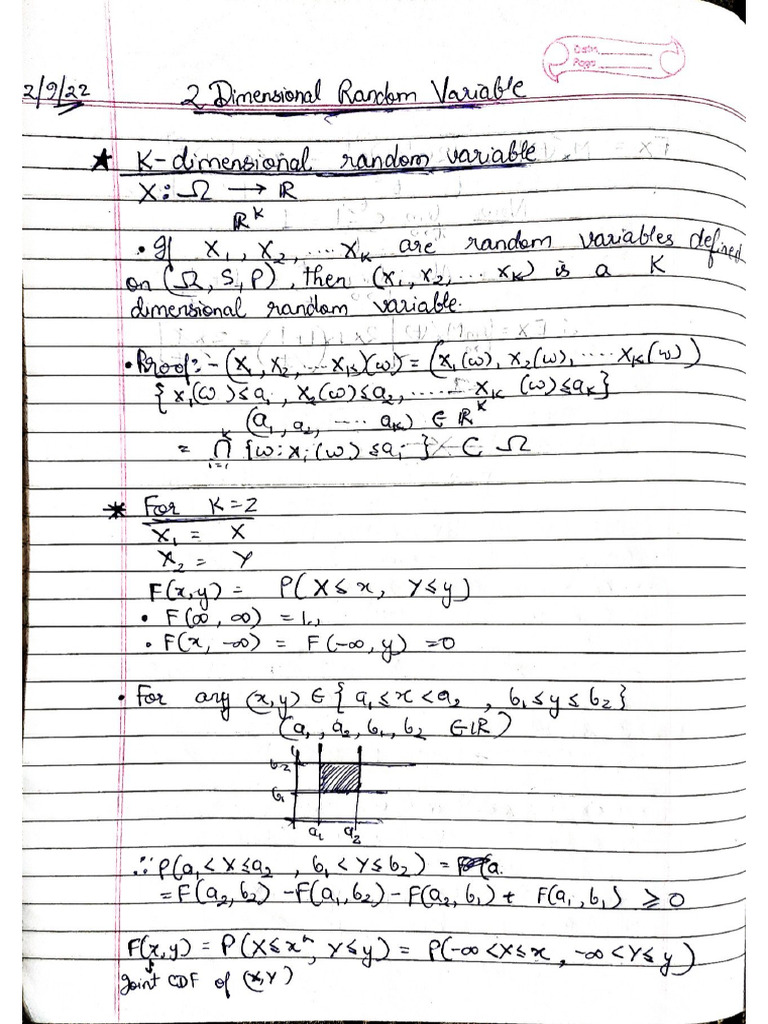 Date
Page
2/9/22
2 Dimensional Random Variable
* K-dimensional random variable
X: Ω → ℝ
ℝ^K
• If X₁, X₂, ... X_K are random variables defined
on (Ω, S, P), then (X₁, X₂, ... X_K) is a K
dimensional random variable.
• Proof:- (X₁, X₂, ... X_K)(ω) = (X₁(ω), X₂(ω), ... X_K(ω))
{X₁(ω) ≤ a₁, X₂(ω) ≤ a₂, ... X_K(ω) ≤ a_K}
(a₁, a₂, ... a_K) ∈ ℝ^K
= ∩_{i=1}^{K} {ω: X_i(ω) ≤ a_i} ⊂ Ω
* For K=2
X₁ = X
X₂ = Y
F(x,y) = P(X ≤ x, Y ≤ y)
• F(∞, ∞) = 1,
• F(x, -∞) = F(-∞, y) = 0
• For any (x,y) ∈ {a₁ ≤ x < a₂, b₁ ≤ y ≤ b₂}
(a₁, a₂, b₁, b₂ ∈ ℝ)
b₂
b₁
a₁ a₂
∴ P(a₁ < X ≤ a₂, b₁ < Y ≤ b₂) = (a.
= F(a₂, b₂) - F(a₁, b₂) - F(a₂, b₁) + F(a₁, b₁) ≥ 0
F(x,y) = P(X ≤ x, Y ≤ y) = P(-∞ < X ≤ x, -∞ < Y ≤ y)
Joint CDF of (X,Y)